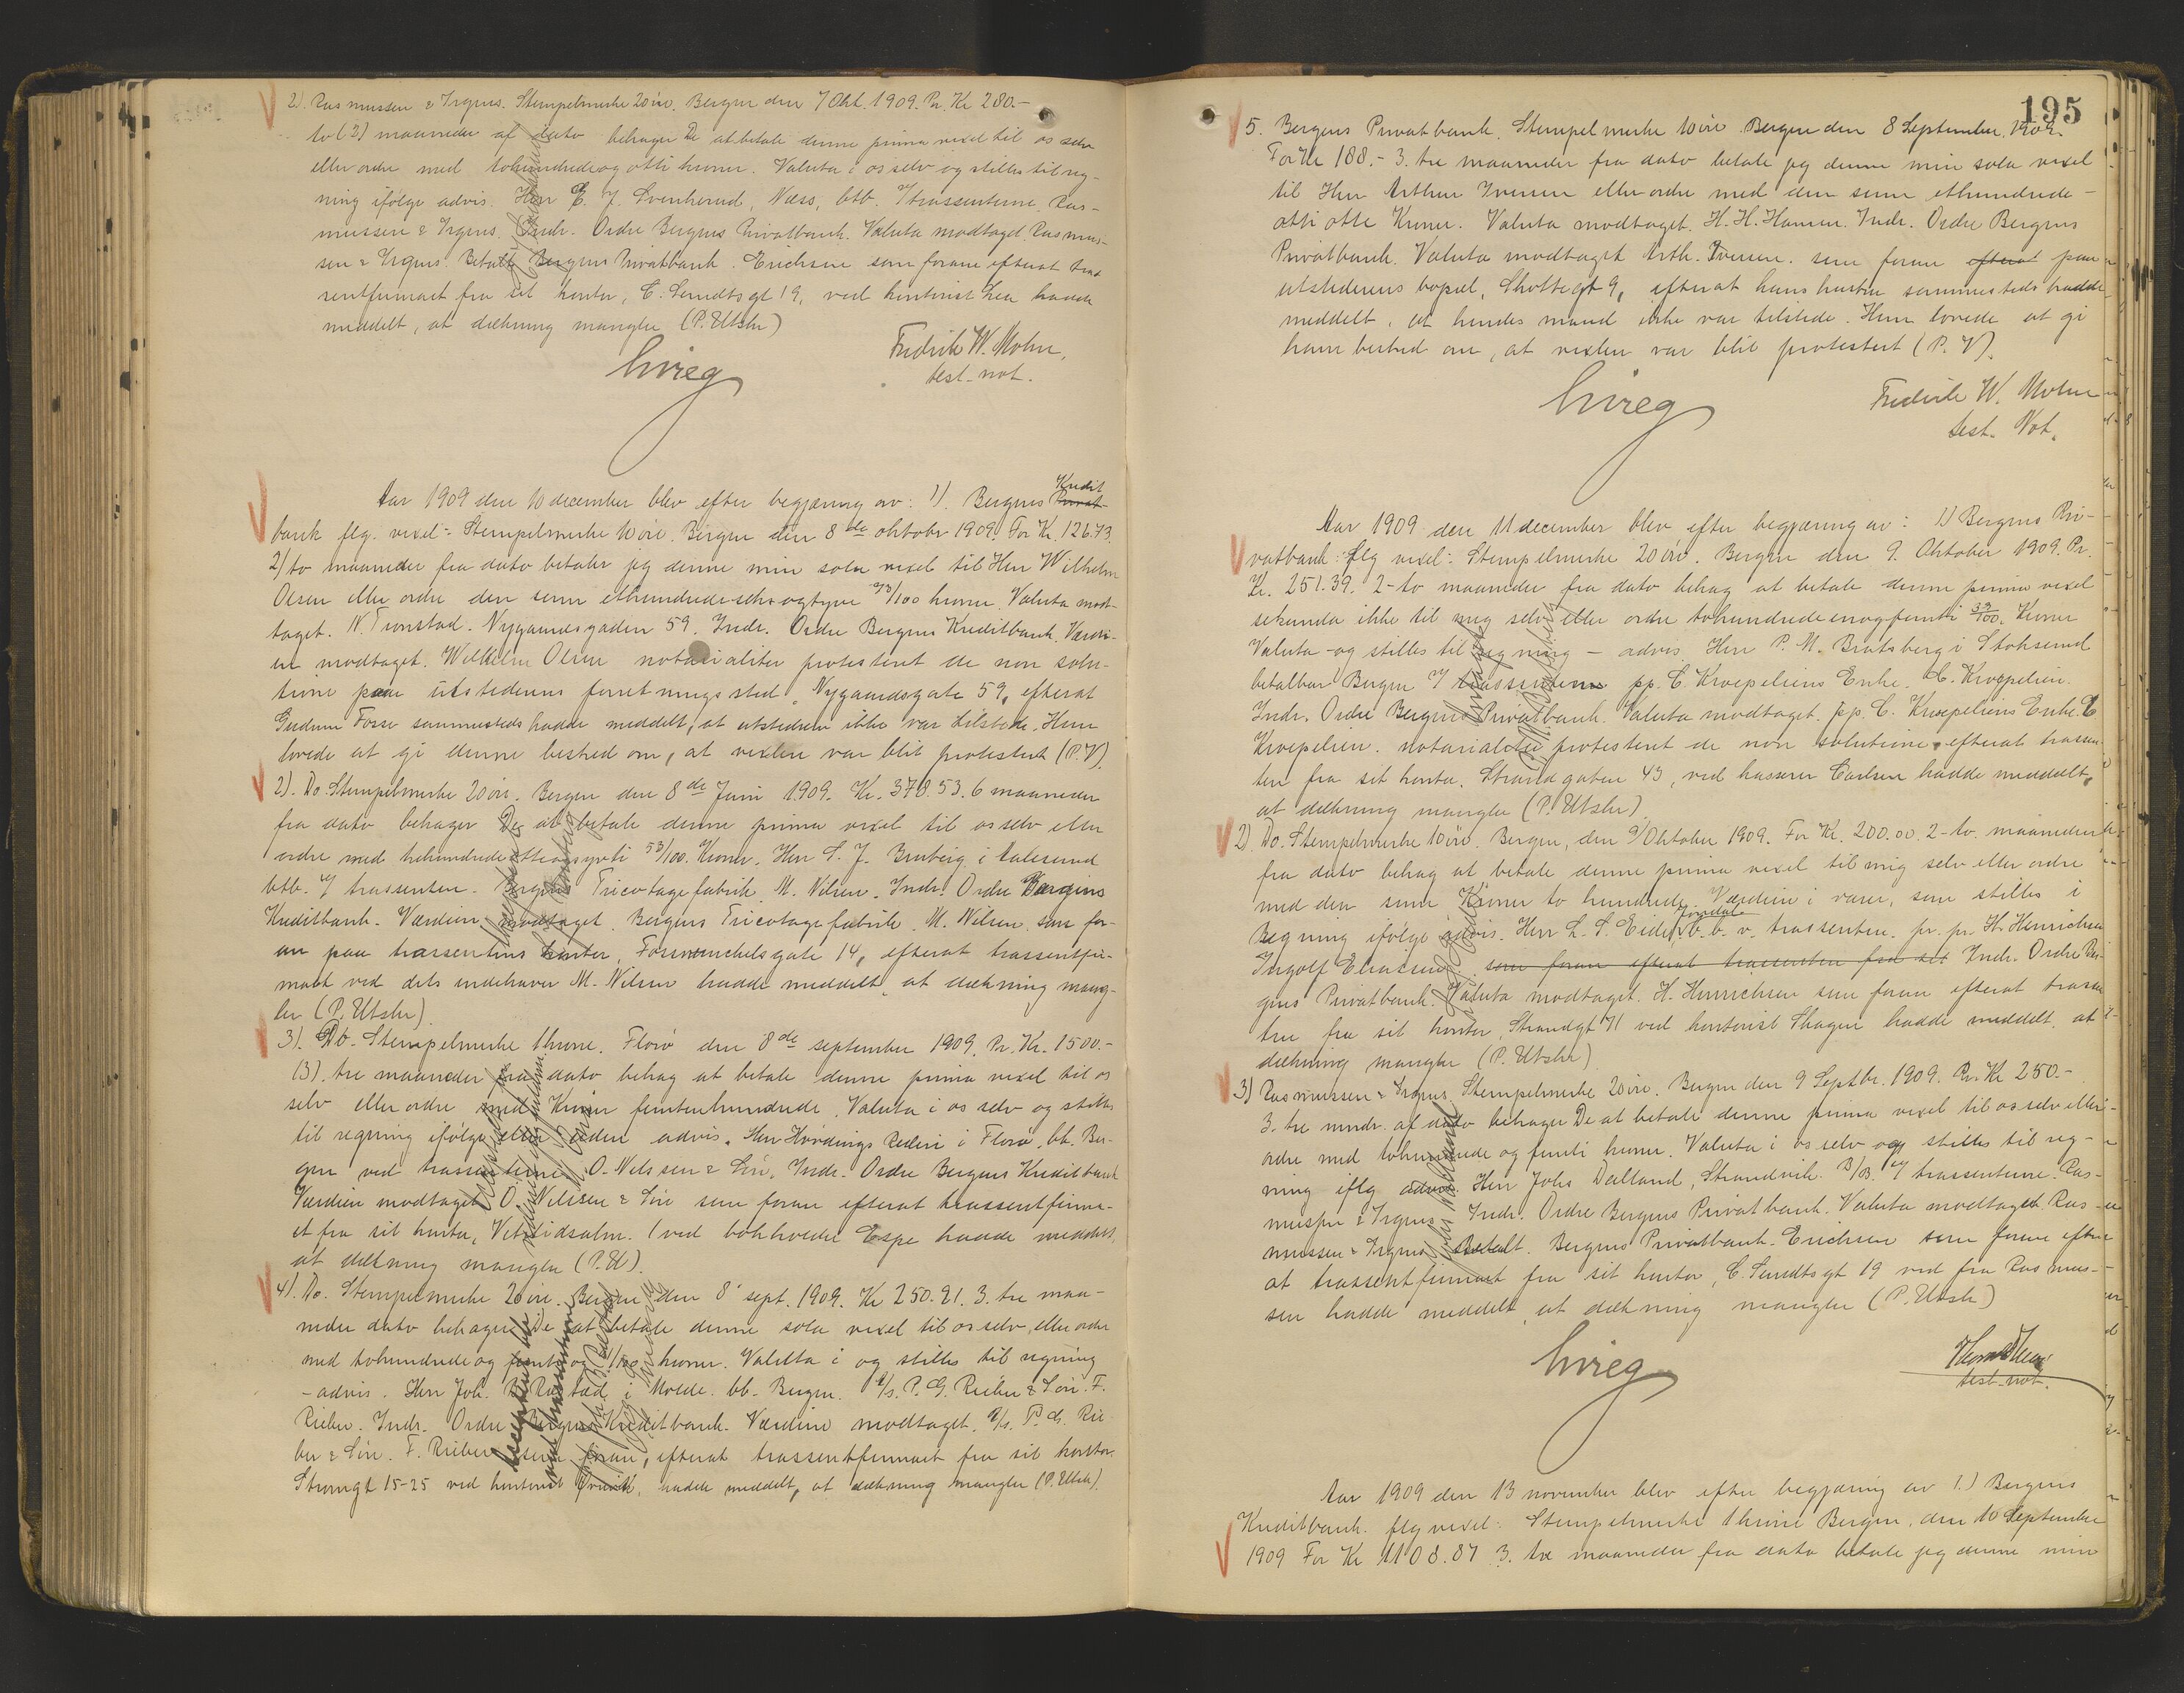 2). Rasmussen & Irgens. Stempelmerke 20 øre. Bergen den 7 Okt. 1909. Pr. Kr 280.-
to (2) maaneder af dato behager De at betale denne prima vexel til os selv
eller ordre med tohundredeogotti kroner. Valuta i os selv og stilles til reg-
ning ifølge advis. Herr E. J. Svenkerud, Næss, btb. trassenterne. Ras-
mussen & Irgens. Indr. Ordre Bergens Privatbank. Valuta modtaget. Rasmus-
sen & Irgens. Betalt Bergens Privatbank. Erichsen som foran efterat tras
sentfirmaet fra sit kontor, C. Sundtsgt 19, ved kontorist hadde
meddelt, at dækning mangler (P. Utstr)
Fredrik W. Mohn,
test. not.
Aar 1909 den 10 december blev efter begjæring av: 1). Bergens Privat Kredit
bank flg. vexel: Stempelmerke 10 øre. Bergen den 8de oktober 1909. For Kr. 126.73.
2) to maaneder fra dato betaler jeg denne min sola vexel til Herr Wilhelm
Olsen eller ordre den sum ethundredeseksogtyve 73/100 kroner. Valuta mod-
taget. N. Tronstad. Nygaardsgaden 59. Indr. Ordre Bergens Kreditbank. Værdi-
en modtaget. Wilhelm Olsen notarialiter protesteret de non solu-
tione paa utstederens forretningssted, Nygaardsgate 59, efterat
Gudrun Fosse sammesteds hadde meddelt, at utstederen ikke var tilstede. Hun
lovede at gi denne besked om, at vexlen var blit protestert (P.V).
2). Do. Stempelmerke 20 øre. Bergen den 8de Juni 1909. Kr. 378.53. 6 maaneder
fra dato behager De at betale denne prima vexel til os selv eller
ordre med trehundredeotteogsyvti 53/100 Kroner. Herr S. J. Bruberg i Aalesund
btb. trassenten. Bergens Tricotagefabrik M. Nilsen. Indr. Ordre Bergens
Kreditbank. Værdien modtaget. Bergens Tricotagefabrik. M. Nilsen. som for-
an paa trassentens kontor, Forswenckelsgate 14, efterat trassentfir-
maet ved dets indehaver M. Nilsen hadde meddelt, at dækning mang-
ler (P. Utstr).
3). Do. Stempelmerke 1 krone. Florø den 8de september 1909. Pr. Kr. 1500.-
(3). tre maaneder fra dato behag at betale denne prima vexel til os
selv eller ordre med Kroner femtenhundrede. Valuta i os selv og stilles
til regning ifølge eller uden advis. Herr Hovdings Rederi i Florø, bb. Ber-
gen ved trassenterne O. Nilssen & Søn, Indr. Ordre Bergens Kreditbank
Værdien modtaget O. Nilssen & Søn som foran efterat trassentfirma-
et fra sit kontor, Vetrlidsalm. 1 ved bokholder Espe hadde meddelt,
at dækning mangler (P.U).
4). Do. Stempelmerke 20 øre. Bergen den 8' sept. 1909. Kr 250.91. 3. tre maa-
neder dato behager De at betale denne sola vexel til os selv, eller ordre
med tohundredeog femti og 91/100 kroner. Valuta i og stilles til regning
- advis. Herr Joh. R. i Molde. bb. Bergen. A/s. P. G. Rieber & Søn. F.
Rieber. Indr. Ordre Bergens Kreditbank. Værdien modtaget. A/s. P. G. Rie
ber & Søn. F. Rieber som foran, efterat trassentfirmaet fra sit kontor
Strandgt 15-25 ved kontorist hadde meddelt, at dækning mangler (P. Utstr).
195
5. Bergens Privatbank. Stempelmerke 10 øre Bergen den 8 September. 1909.
For Kr 188.- 3. tre maaneder fra dato betale jeg denne min sola vexel
til Herr Arthur Iversen eller ordre med den sum ethundrede-
otti otte Kroner. Valuta modtaget. H. H. Hansen. Indr. Ordre Bergens
Privatbank. Valuta modtaget Arth. Iversen. som foran efterat paa
utstederens bopæl, Skottegt 9, efterat hans hustru sammesteds hadde
meddelt, at hendes mand ikke var tilstede. Hun lovede at gi
ham besked om, at vexlen var blit protestert (P. V).
Fredrik W. Mohn
test. Not.
Aar 1909 den 11 december blev efter begjæring av: 1) Bergens Pri-
vatbank: flg vexel: Stempelmerke 20 øre. Bergen den 9. Oktober 1909. Pr.
Kr. 251.39. 2-to maaneder fra dato behag at betale denne prima vexel
sekunda ikke til mig selv eller ordre tohundredeenogfemti 39/100. Kroner
Valuta - og stilles til regning - advis Herr P. M. Bratsberg i Stoksund
betalbar Bergen trassenten pp. C. Krøepeliens Enke. C. Krøepelien.
Indr. Ordre Bergens Privatbank. Valuta modtaget. pp. C. Krøepeliens Enke. C
Krøepelien. notarialiter protestert de non solutione, efterat trassen
ten fra sit kontor. Strandgaten 43, ved kasserer Carlsen hadde meddelt,
at dækning mangler (P. Utstr)
2). Do. Stempelmerke 10 øre. Bergen, den 9/Oktober 1909. For Kr. 200.00 2-to. maaneder
fra dato behag at betale denne prima vexel til mig selv eller ordre
med den sum Kroner to hundrede. Værdien i varer, som stilles i
Regning ifølge advis. Herr L. S. Eide b. b. v. trassenten. pr. pr. H. Henrichsen
Ingolf Eliassen som foran efterat trassenten fra sit Indr. Ordre Ber-
gens Privatbank. Valuta modtaget. H. Henrichsen som foran efterat trassen
ten fra sit kontor, Strandgt 71 ved kontorist Skagen hadde meddelt, at
dækning mangler (P. Utstr)
3) Rasmussen & Irgens. Stempelmerke 20 øre. Bergen den 9 Septbr. 1909. Pr. Kr 250.-
3. tre mndr. af dato behager De at betale denne prima vexel til os selv eller
ordre med tohundrede og femti kroner. Valuta i os selv og stilles til reg-
ning iflg advis. Herr Johs Dalland, Strandvik. B/B. trassenterne. Ras-
mussen & Irgens. Indr. Ordre Bergens Privatbank. Valuta modtaget. Ras-
mussen & Irgens. Betalt. Bergens Privatbank. Erichsen som foran efter
at trassentfirmaet fra sit kontor, C. Sundtsgt 19 ved fra Rasmus-
sen hadde meddelt, at dækning mangler (P. Utstr)
test. not.
Aar 1909 den 13 november blev efter begjæring av 1.) Bergens
Kreditbank. flg vexel: Stempelmerke 1 krone Bergen, den 10 September
1909 For Kr 1108.87 3. tre maaneder fra dato betale jeg denne min